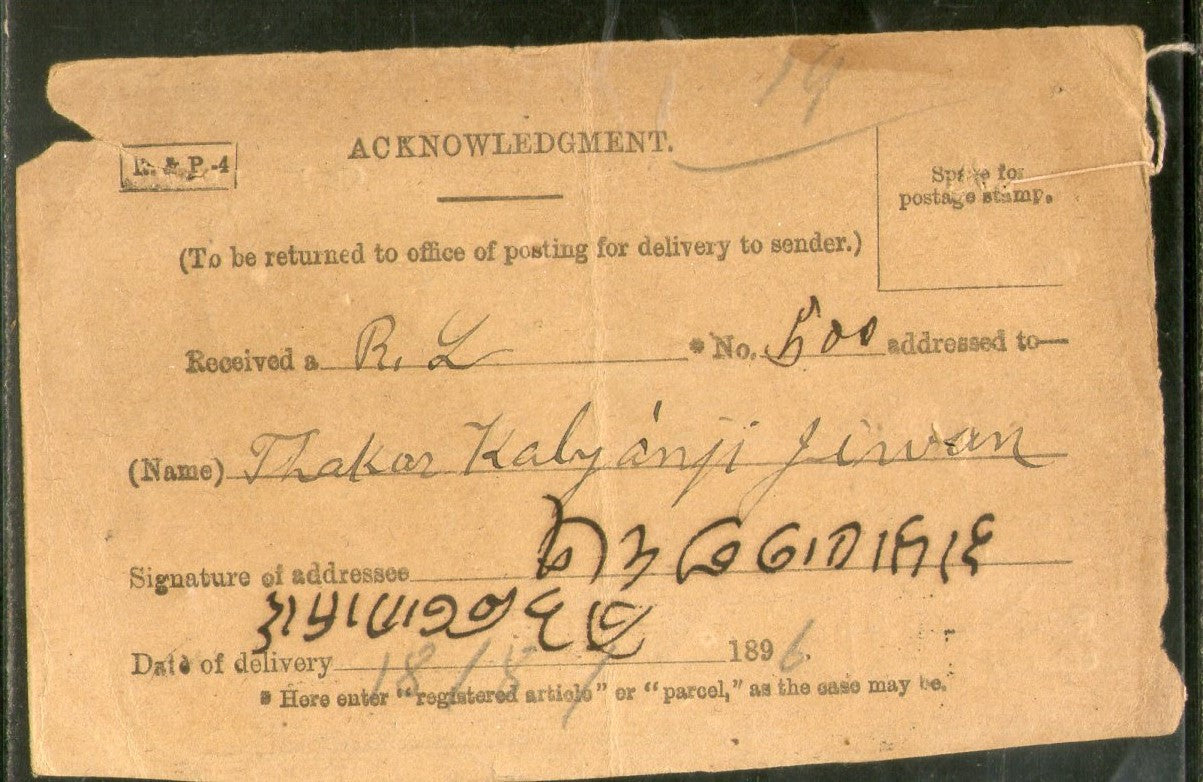 19
ACKNOWLEDGMENT.
R. & P.-4
Space for
postage stamp.
(To be returned to office of posting for delivery to sender.)
Received a R. L * No. 500 addressed to—
(Name) Thakar Kalyánji Jiwan
Signature of addressee
Date of delivery 18/8/ 1896.
* Here enter “registered article” or “parcel,” as the case may be.